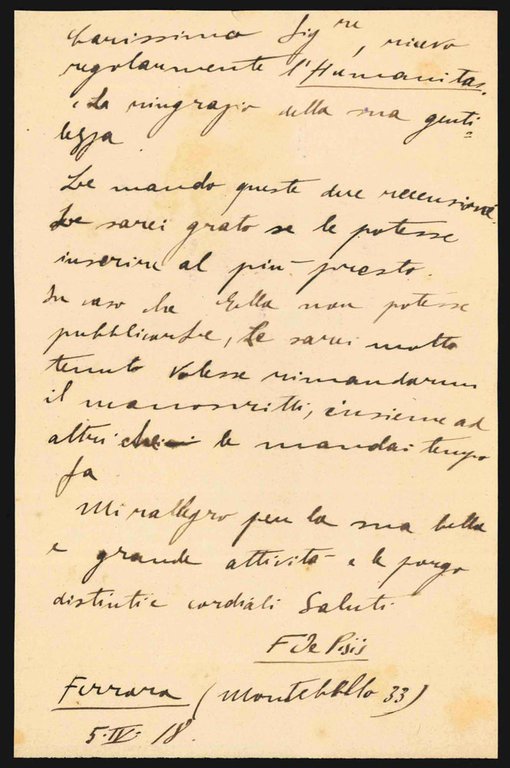 Carissimo Sig^re, ricevo
regolarmente l'Humanitas.
e La ringrazio della sua genti=
lezza
Le mando queste due recensioni.
Le sarei grato se le potesse
inserire al più presto.
In caso che Ella non potesse
pubblicarle, Le sarei molto
tenuto volesse rimandarmi
il manoscritti, insieme ad
altri che le mandai tempo
fa
Mi rallegro per la sua bella
e grande attività e le porgo
distinti e cordiali Saluti
F De Pisis
Ferrara (Montebello 33)
5-IV-18.